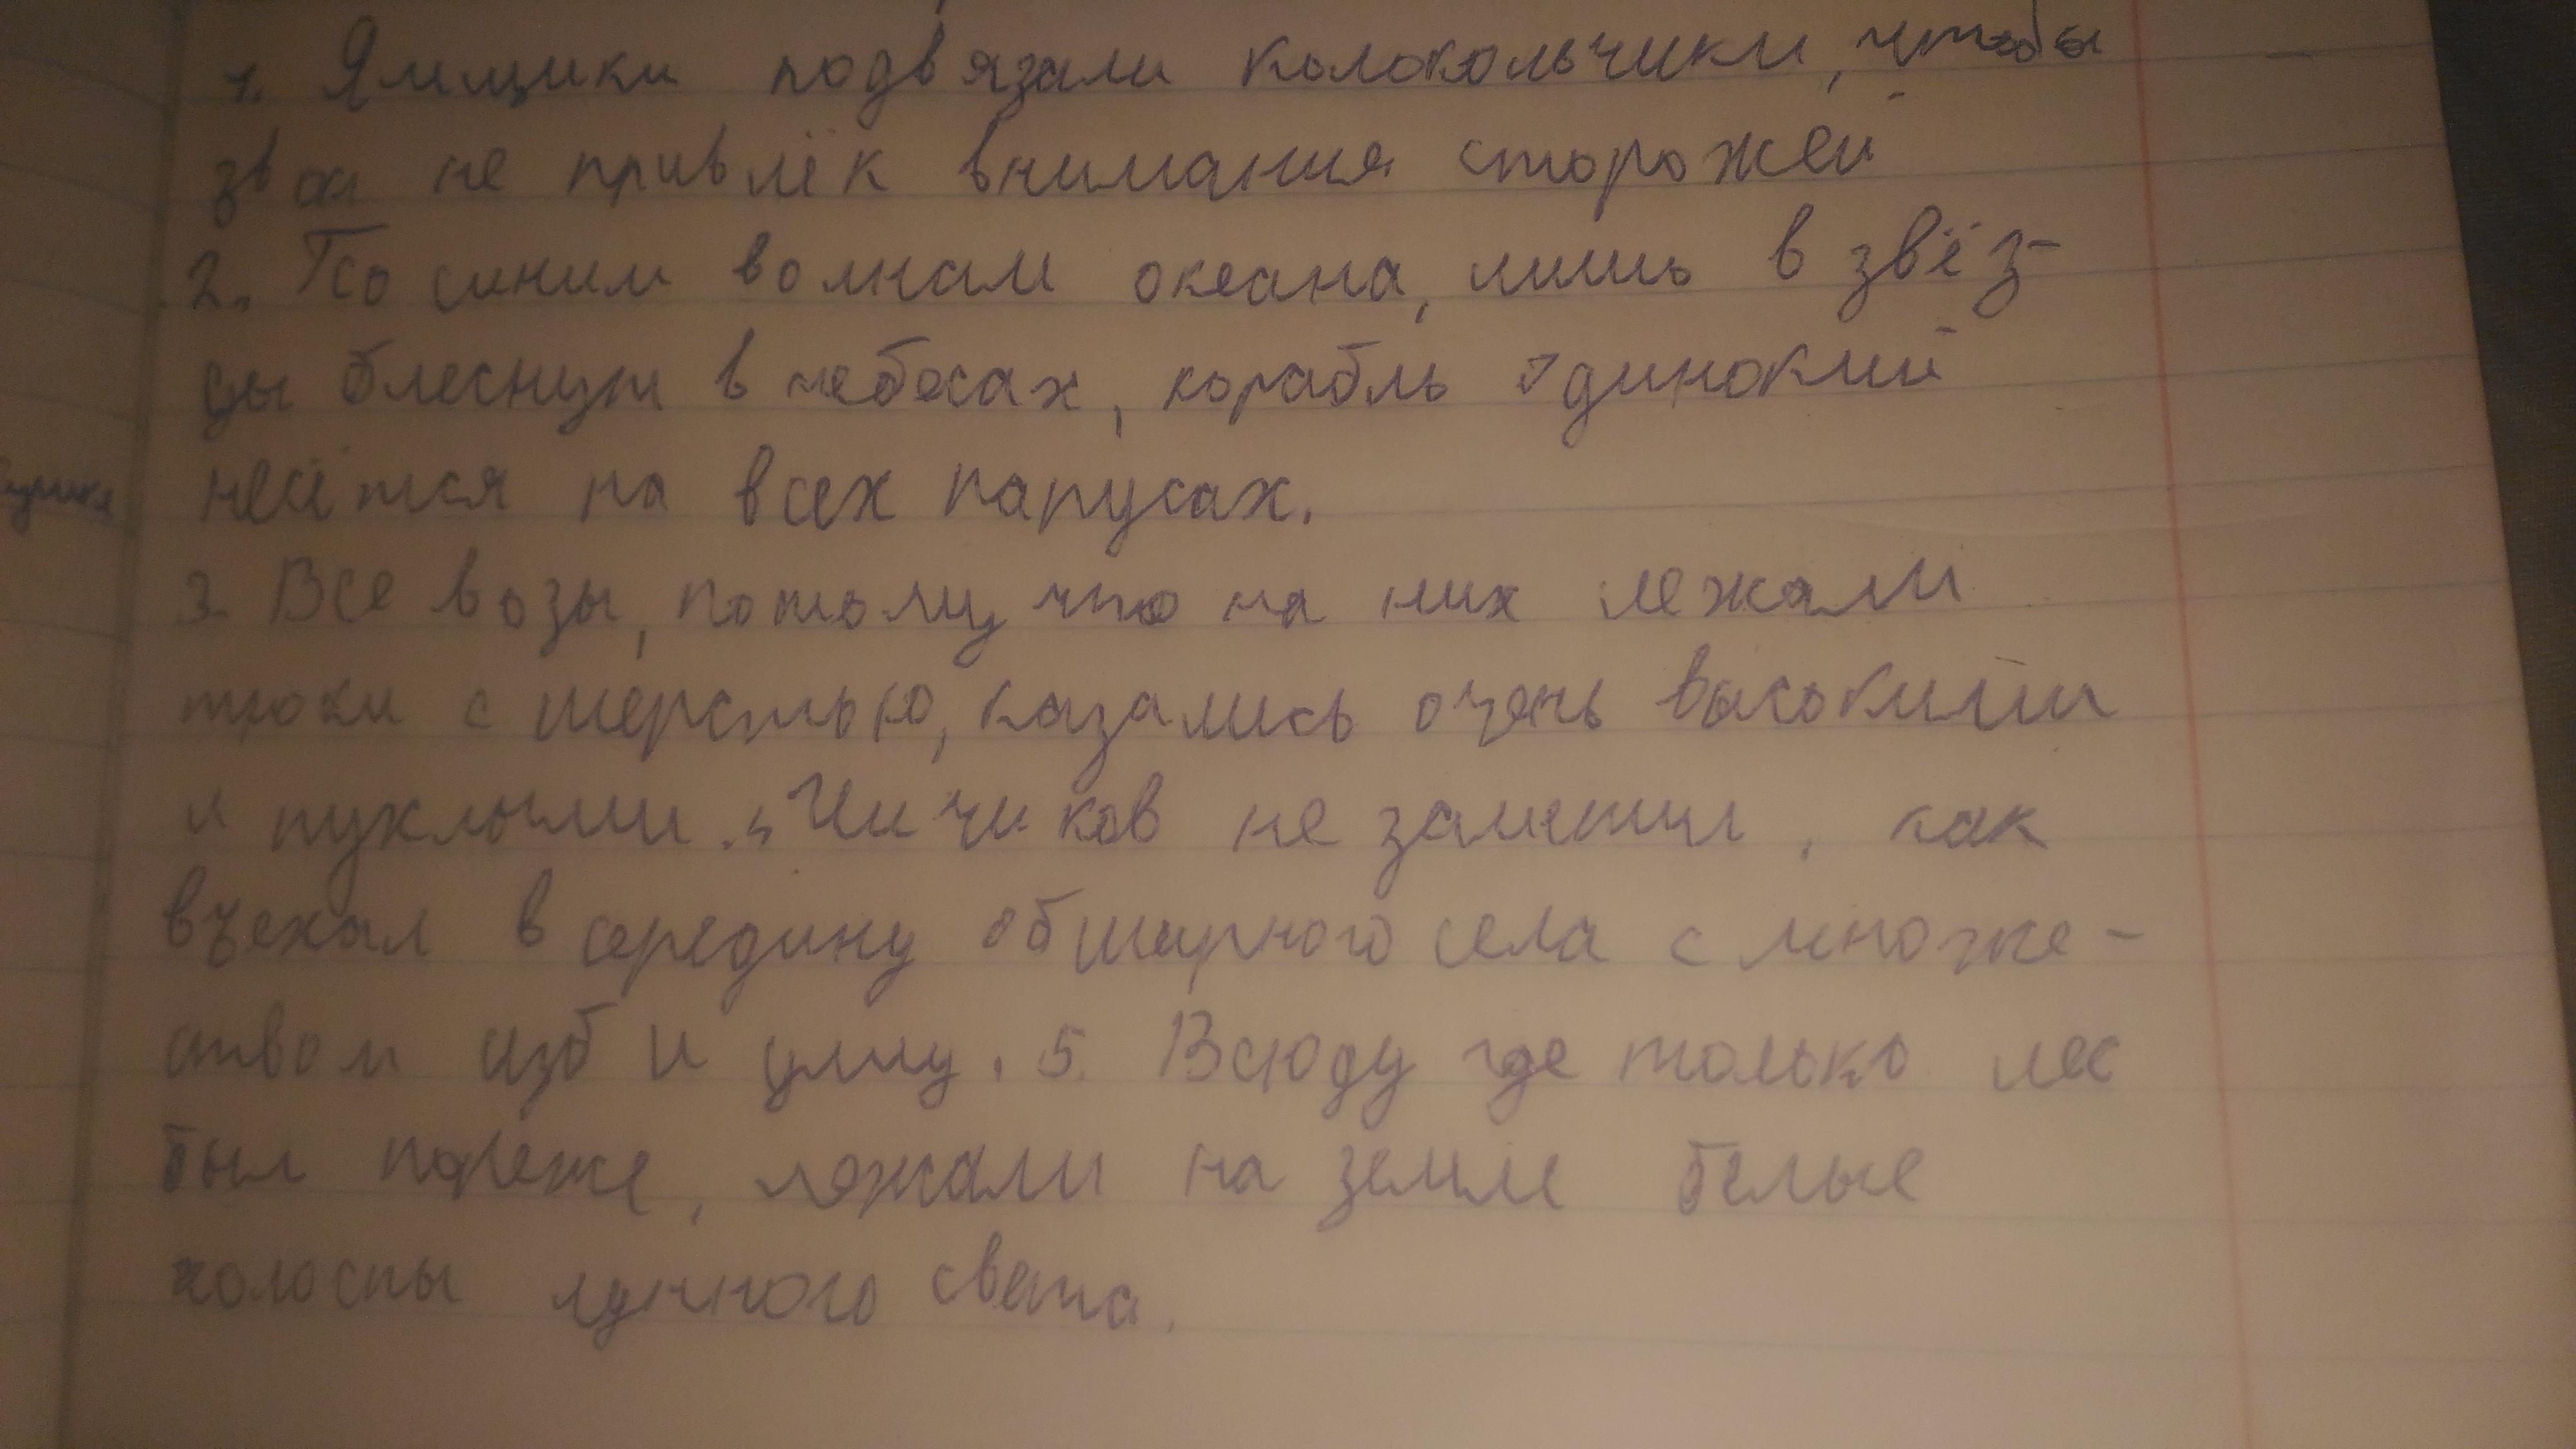 1. Ямщики подвязали колокольчики, чтобы
звон не привлёк внимания сторожей
2. По синим волнам океана, лишь в звёз-
ды блеснут в небесах, корабль одинокий
несётся на всех парусах.
3. Все возы, потому что на них лежали
тюки с шерстью, казались очень высокими
и пухлыми. 4 Чичиков не заметил, как
въехал в середину обширного села с множе-
ством изб и улиц. 5. Всюду где только лес
был пореже, лежали на земле белые
холосты лунного света.